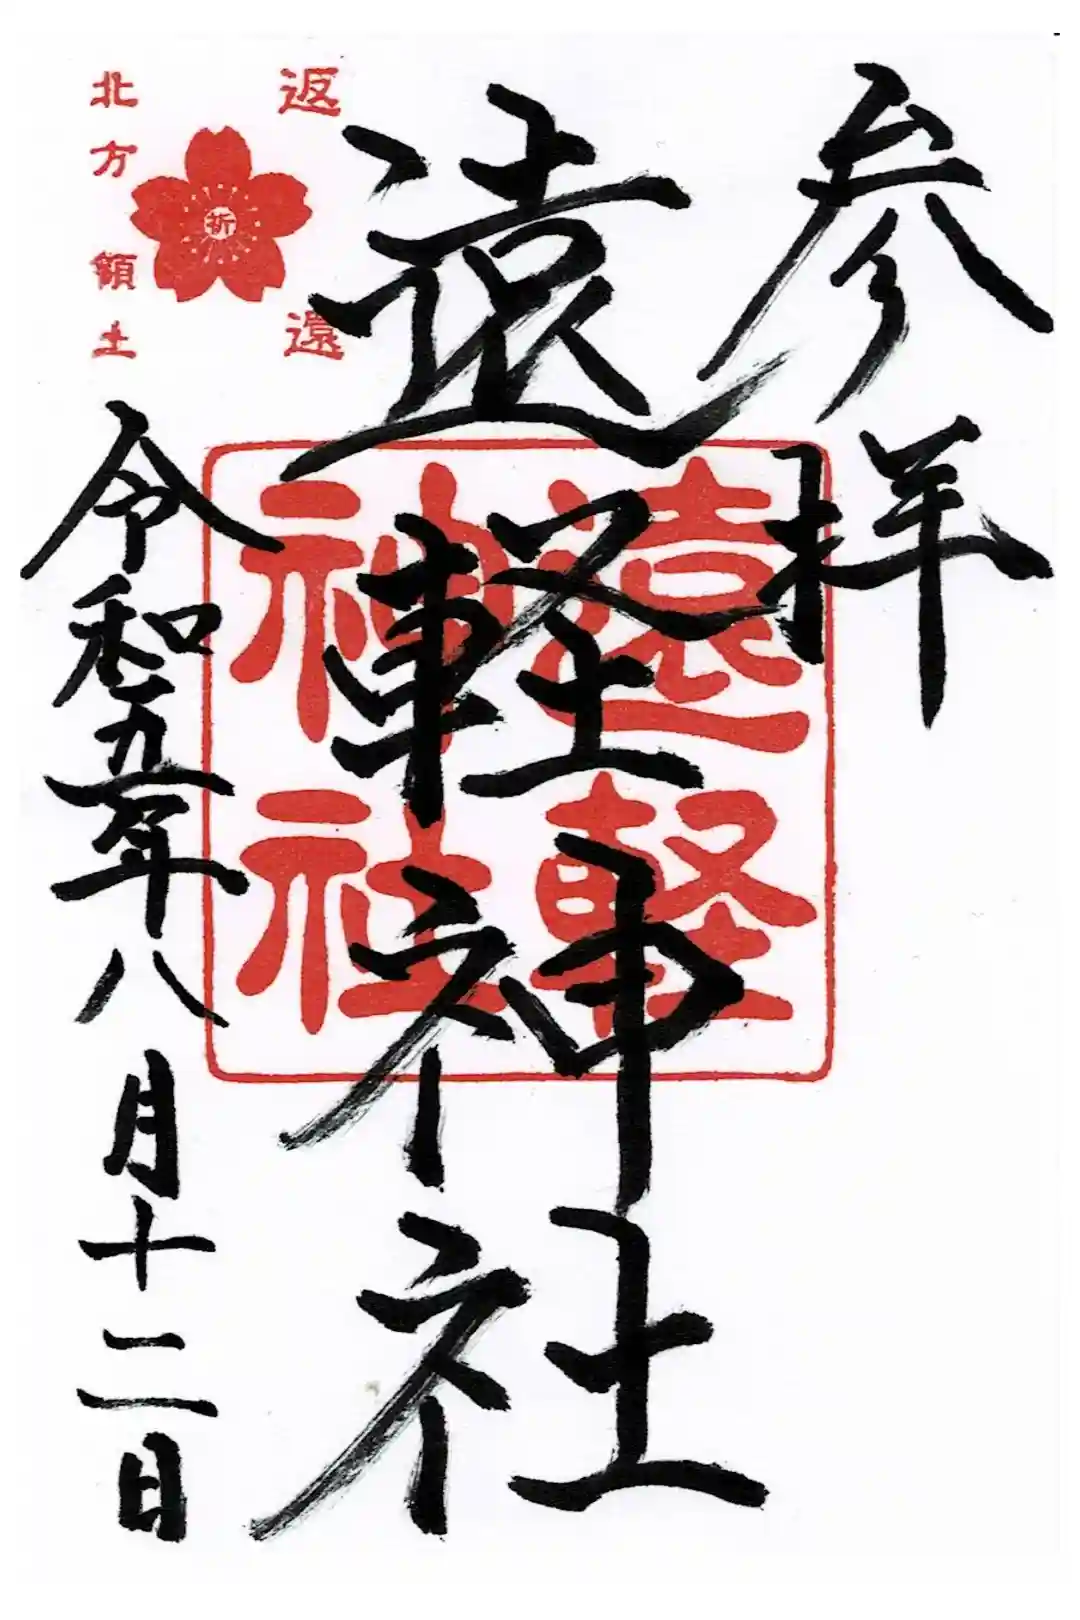 参拝
遠軽神社
遠軽
神社
返還
祈
北方領土
令和五年八月十二日